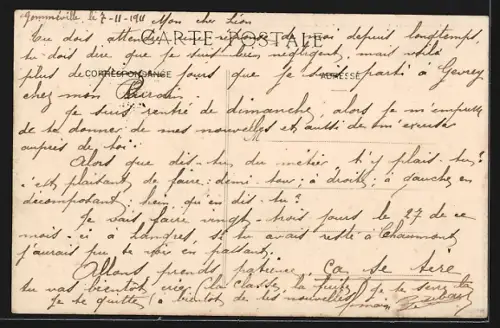 Gommerville, le 7-11-1911 Mon cher Léon
CARTE POSTALE
Tu dois attendre réponse de moi depuis longtemps
tu dois dire que je suis bien négligent, mais voilà
CORRESPONDANCE
ADRESSE
plus de jours que je suis parti à Gevrey
chez mon
Je suis rentré de dimanche, alors je m'empresse
de te donner de mes nouvelles et aussi de m'excuser
auprès de toi.
Alors que dis-tu du métier t'y plais-tu?
c'est plaisant de faire: demi-tour; à droite; à gauche en
décomposant; hein qu'en dis-tu?
Je vais faire vingt-trois jours le 27 de ce
mois-ci à Langres, si tu avais resté à Chaumont
j'aurais pu te voir en passant.
Allons prends patience ça se tire
tu vas bientôt crier (la classe, la fuite) je te serre la
Je te quitte (à bientôt de tes nouvelles)